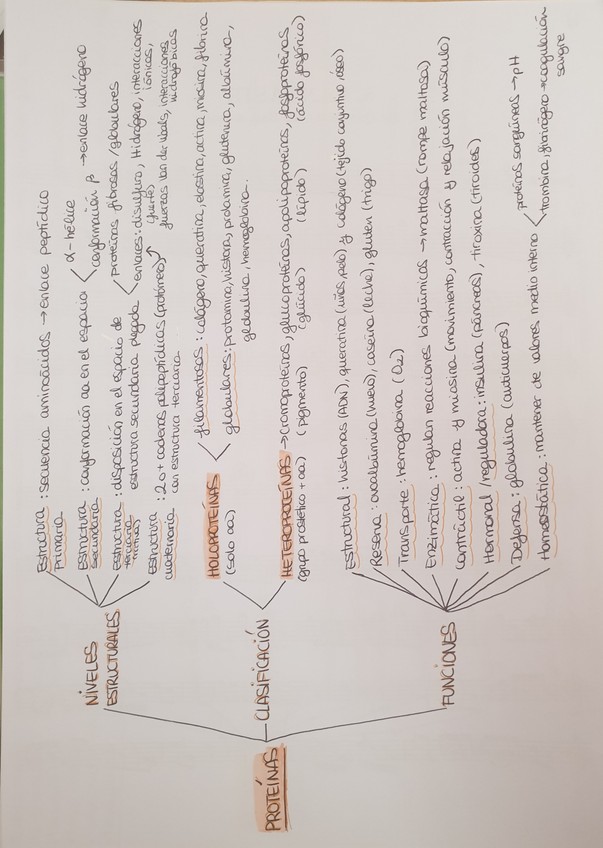 PROTEÍNAS
NIVELES
ESTRUCTURALES
Estructura : secuencia aminoácidos → enlace peptídico
primaria
Estructura : conformación aa en el espacio
secundaria
α-hélice
conformación β → enlace hidrógeno
Estructura : disposición en el espacio de
terciaria estructura secundaria plegada
proteínas fibrosas/globulares
enlaces: disulfuro, Hidrógeno, interacciones
(fuerte) iónicas,
fuerzas Van der Waals, interacciones
hidrofóbicas
Estructura : 2 o + cadenas polipeptídicas (protómero)
cuaternaria con estructura terciaria
CLASIFICACIÓN
HOLOPROTEÍNAS
(solo aa)
filamentosas : colágeno, queratina, elastina, actina, miosina, fibrina
globulares : protamina, histona, prolamina, glutenina, albúmina,
globulina, hemoglobina.
HETEROPROTEÍNAS → cromoproteínas, glucoproteínas, apolipoproteínas, fosfoproteínas
(grupo prostético + aa) (pigmento) (glúcido) (lípido) (ácido fosfórico)
FUNCIONES
Estructural : histonas (ADN), queratina (uñas, pelo) y colágeno (tejido conjuntivo, óseo)
Reserva : ovoalbúmina (huevo), caseína (leche), gluten (trigo)
Transporte : hemoglobina (O2)
Enzimática : regulan reacciones bioquímicas → maltasa (rompe maltosa)
Contráctil : actina y miosina (movimiento, contracción y relajación músculo)
Hormonal/reguladora : insulina (páncreas), tiroxina (tiroides)
Defensa : globulina (anticuerpos)
Homeostática : mantener de valores medio interno
proteínas sanguíneas → pH
trombina, fibrinógeno → coagulación
sangre